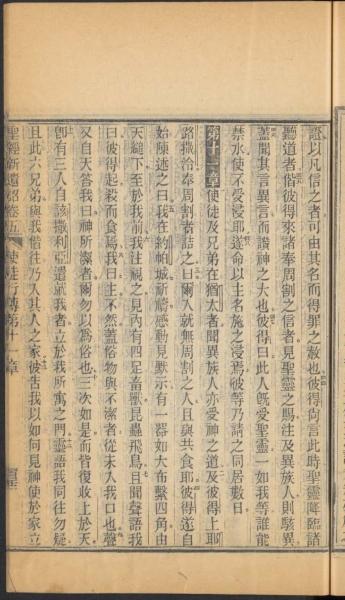 證以凡信之者可由其名而得罪之赦也彼得尚言此時聖靈降臨諸
聽道者偕彼得來諸奉周割之信者見聖靈之賜注及異族人則駭異
蓋聞其言異言而讚神之大也彼得曰此人既受聖靈一如我等誰能
禁水使不受浸耶遂命以主名施之浸焉彼等乃請之同居數日
第十一章使徒及兄弟在猶太者聞異族人亦愛神之道及彼得上耶
路撒冷奉周割者詰之曰爾入就無周割之人且與共食耶彼得遂自
始陳述之曰我在約帕城祈禱感動見默示有一器如大布繫四角由
天縋下至於我前我注視之見內有四足畜獸昆蟲飛鳥且聞聲語我
曰彼得起殺而食焉我曰主不然蓋俗物與不潔者從未入我口也聲
又自天答我曰神所潔者爾勿以為俗也三次如是而皆復收上於天
卽有三人自該撒利亞遣就我者立於我所寓之門靈語我同往勿疑
且此六兄弟與我偕往乃入其人之家彼告我以如何見神使於家立
聖經新遺詔卷五 使徒行傳第十一章